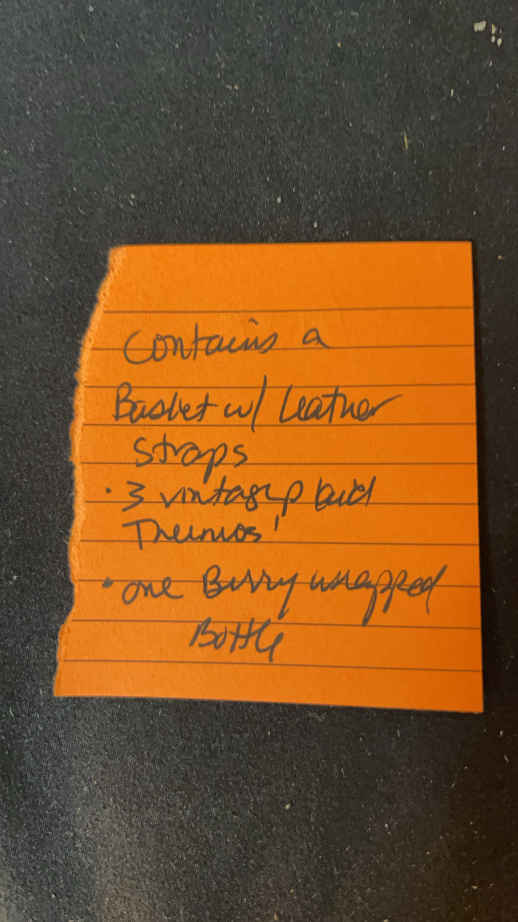 Contains a
Basket w/ Leather
Straps
• 3 vintage plaid
Thermos'
• one Burry wrapped
Bottle